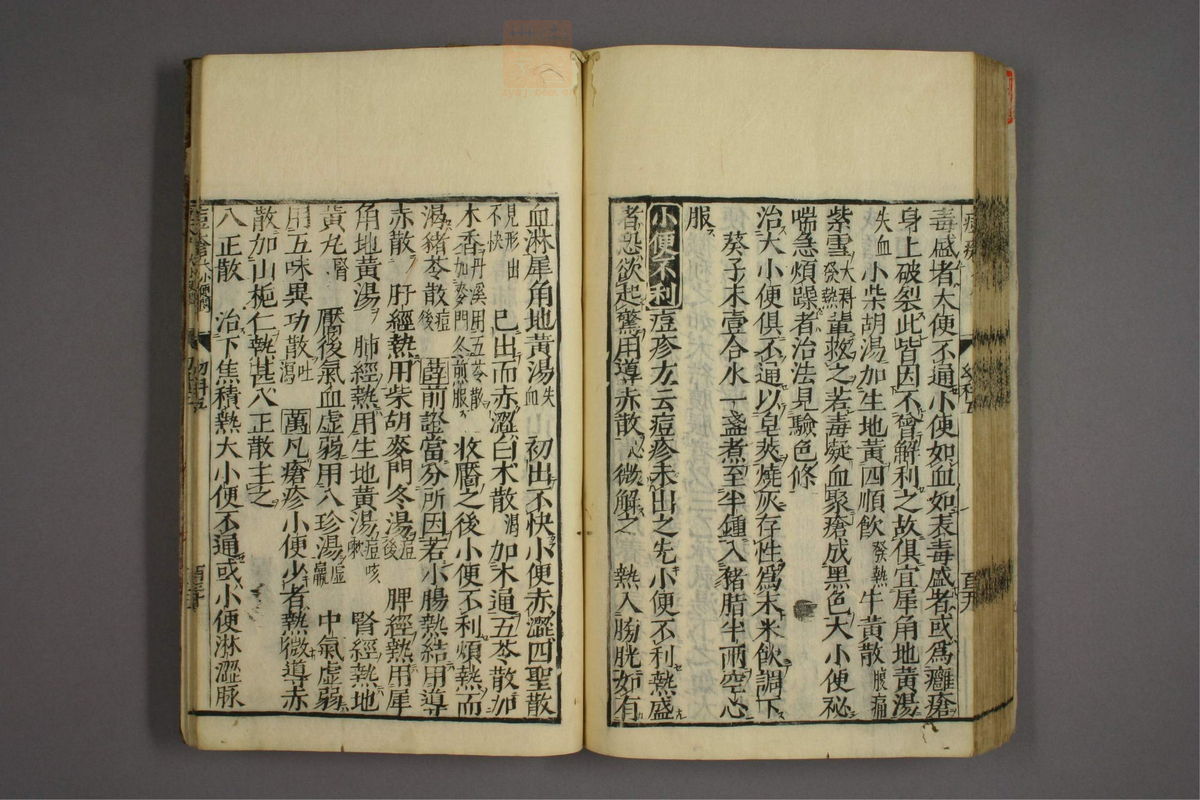 毒盛堵大便不通小便如血如表毒盛者或為癰瘡
身上破裂此皆因不曾解利之故俱宜犀角地黃湯
失血 小柴胡湯加生地黃四順飲發熱牛黃散腹痛
紫雪大科發熱輩救之若毒凝血聚瘡成黑色大小便秘
喘急煩躁者治法見驗色條
治大小便俱不通以皂莢燒灰存性為末米飲調下
葵子末壹合水一盞煮至半鍾入猪脂半兩空心
服
小便不利 痘疹方云痘疹未出之先小便不利熱盛
者恐欲起驚用導赤散微解之 熱入膀胱如有
血淋犀角地黃湯失血 初出不快小便赤澀四聖散
見形出不快 已出而赤澀白朮散渴加木通五苓散加
木香丹溪用五苓散加麥門冬煎服 收靨之後小便不利煩熱而
渴猪苓散痘後 薛前證當分所因若小腸熱結用導
赤散 肝經熱用柴胡麥門冬湯痘後 脾經熱用犀
角地黃湯 肺經熱用生地黃湯痘咳嗽 腎經熱地
黃丸腎 靨後氣血虛弱用八珍湯虛羸 中氣虛弱
用五味異功散吐瀉 萬凡瘡疹小便少者熱微導赤
散加山梔仁熱甚八正散主之
八正散 治下焦積熱大小便不通或小便淋澀脉